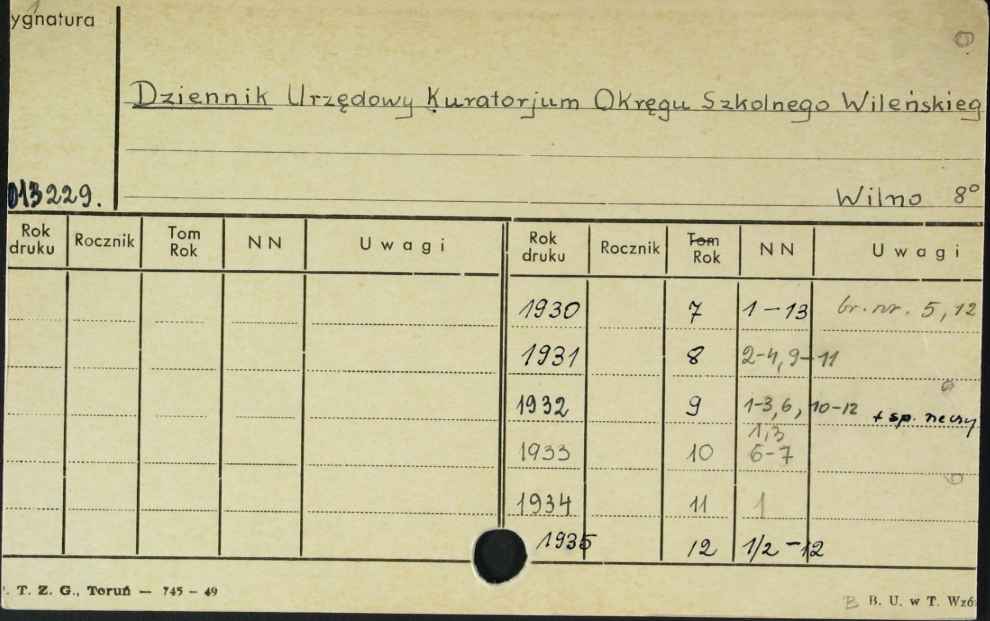 ygnatura
Dziennik Urzędowy Kuratorjum Okręgu Szkolnego Wileńskieg
013229.
Wilno 8°
Rok druku Rocznik Tom Rok NN Uwagi Rok druku Rocznik Tom Rok NN Uwagi
1930 7 1-13 br. nr. 5, 12
1931 8 2-4, 9-11
1932 9 1-3, 6, 10-12 + sp. rzeczy
1,3
1933 10 6-7
1934 11 1
1935 12 1/2 - 12
. T. Z. G., Toruń — 745 - 49
B B. U. w T. Wzó